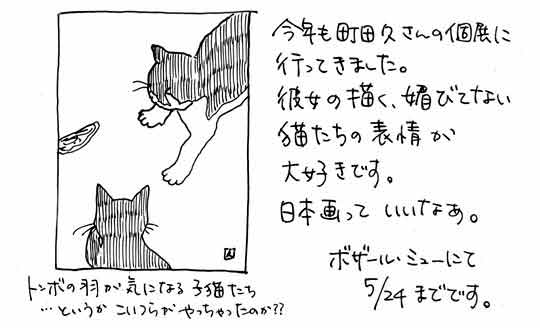 今年も町田久さんの個展に
行ってきました。
彼女の描く、媚びてない
猫たちの表情が
大好きです。
日本画っていいなあ。
ボザール・ミューにて
5/24までです。
トンボの羽が気になる子猫たち
…というかこいつらがやっちゃったのか??